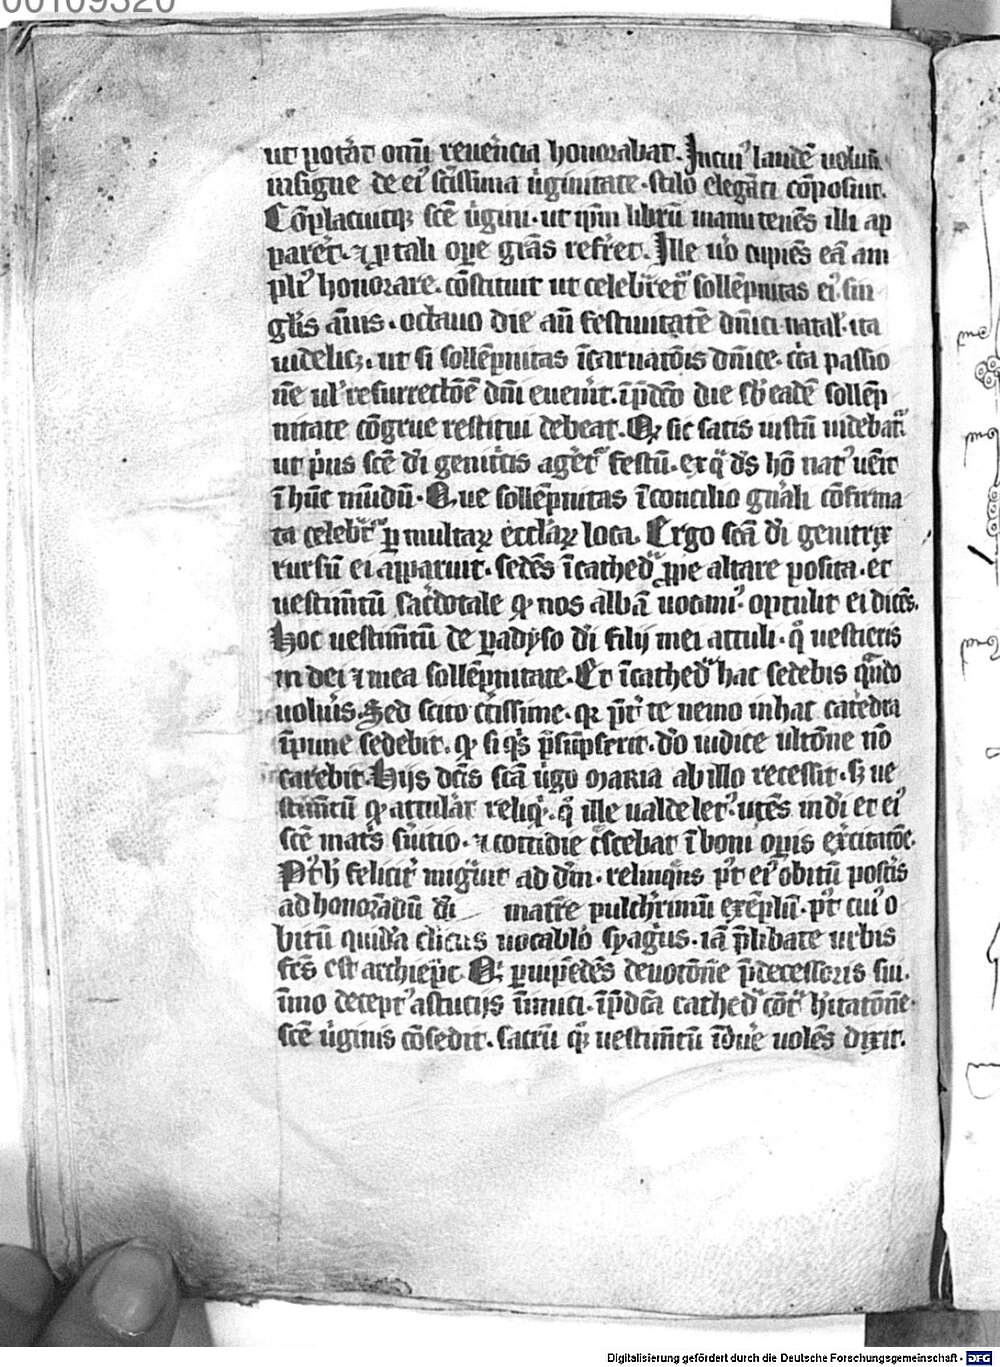 00109320
ut potat̄ om̄i reuerēcia honorabat. In cui᾽ laudē uolum̄
insigne de ei᾽ sc̄issima ūginitate. stilo eleganti cōposuit.
Cōplacuitq; sc̄e ūgini. ut ip̄m librū manu tenēs illi ap
pareret. ⁊ ꝑ tali oꝑe grās refr̄et. Ille uo᾽ cupiēs eā am
pli᾽ honorare. cōstituit ut celebret᾽ sollēpnitas ei᾽ sin
gl̄is ānis. octauo die an̄ festiuitatē dn̄ici natal᾽. ita
uidelic;. ut si sollēpnitas īcarnatōis dn̄ice. circa passio
nē ul᾽ resurrectōē dn̄i euenit̄. īp̄dc̄o die sb᾽ eadē sollēp
nitate cōgrue restitui debeat. Qꝛ sic satis iustū uidebat᾽.
ut pͥus sc̄e di᾽ genitͥcis aget᾽ festū. ex q̄ ds̄ hō nat᾽ uēit
ī hūc mūdū. Que sollēpnitas ī concilio gn̄ali cōfirma
ta celebrat᾽ ꝑ multaꝝ eccl̄aꝝ loca. Ergo sc̄a di᾽ genitrix
rursū ei apparuit. sedēs ī cathedͣ ꝓpe altare posita. et
uestim̄tū sac̄dotale qꝫ nos albā uocam᾽. optulit ei dicēs.
Hoc uestim̄tū de ꝑadyso di᾽ filij mei attuli. q̄ uestieris
in dei ⁊ mea sollēpnitate. Et ī cathedͣ hac sedebis qͣndo
uolūis. Sed scito c̄tissime. qꝛ p̄t᾽ te nemo in hac catedra
īpune sedebit. qꝫ si qͥs p̄sūpserit. dō iudice ultōne nō
carebit. Hijs dc̄is sc̄a ūgo maria ab illo recessit. sꝫ ue
stim̄tū qꝫ attulāt reliqͥt. q̄ ille ualde let᾽. utēs in di᾽ et ei᾽
sc̄e mat̄s s̄uitio. ⁊ cottidie c̄scebat ī boni oꝑis exc̄itatōe.
P᾽t h᾽ felicit̄ migͣuit ad dn̄m. relinqͥēs p᾽t ei᾽ obitū post̄is
ad honorādū di᾽ matrē pulch̄rimū exēplū. p᾽t cui᾽ o
bitū quidā clic᾽us uocablo syagͥus. iā p̄libate urbis
fc̄s est archiep̄c. Qꝛ ꝑuipēdēs deuotōnē p̄decessoris sui.
īmo decept᾽ astucijs īimici. īp̄dc̄a cathedͣ cōt᾽ h᾽itatōnē
sc̄e ūginis cōsedit. sacrū qꝫ uestim̄tū īdue᾽ uolēs dixit.
Digitalisierung gefördert durch die Deutsche Forschungsgemeinschaft - DFG